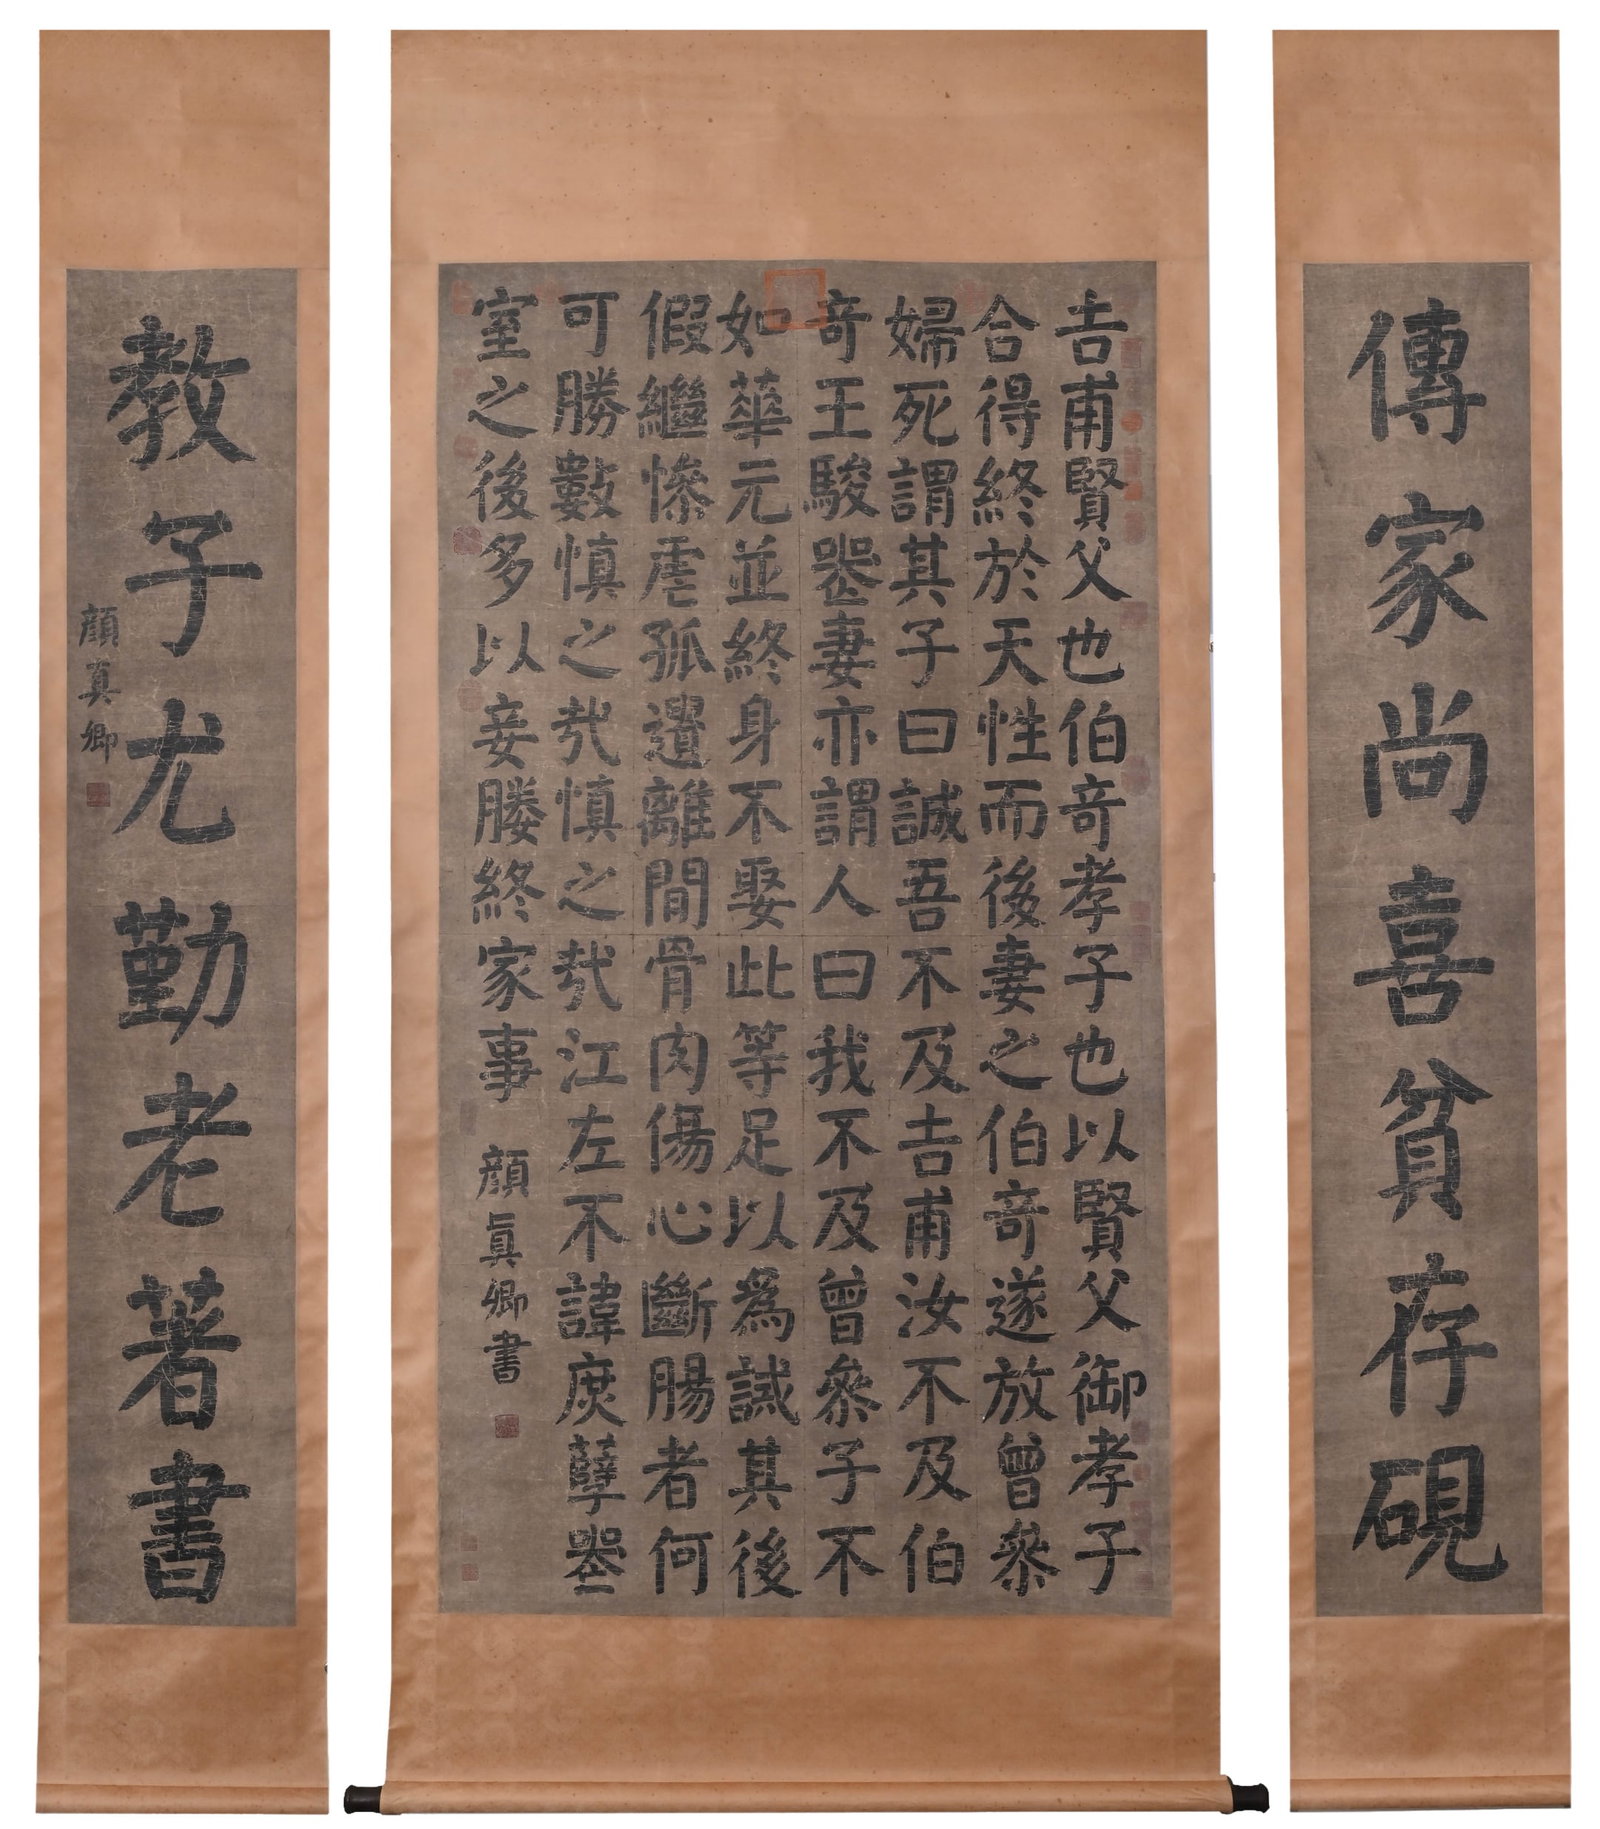 傳家尚喜貧存硯
吉甫賢父也伯竒孝子也以賢父御孝子
合得終於天性而後妻之伯竒遂放曾參
婦死謂其子曰誠吾不及吉甫汝不及伯
竒王駿喪妻亦謂人曰我不及曾參子不
如華元並終身不娶此等足以爲誡其後
假繼慘虐孤遺離間骨肉傷心斷腸者何
可勝數慎之哉慎之哉江左不諱庶孽喪
室之後多以妾媵終家事
顏真卿書
教子尤勤老著書
顏真卿